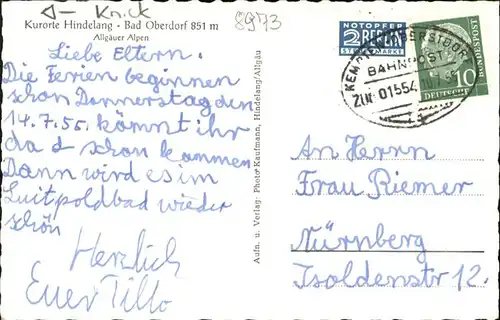 Knick
8973
Kurorte Hindelang - Bad Oberdorf 851 m
Allgäuer Alpen
Liebe Eltern.
Die Ferien beginnen
schon Donnerstag den
14.7.55. kömmt ihr
da schon kommen
Dann wird es im
Luitpoldbad wieder
schön
Herzlich
Euer Tillo
Aufn. u. Verlag: Photo Kaufmann, Hindelang/Allgäu
NOTOPFER
2 BERLIN
STEUERMARKE
KEMPTEN OBERSTDORF
BAHNPOST
ZUG 01554
DEUTSCHE
BUNDESPOST
10
An Herrn
Frau Riemer
Nürnberg
Isoldenstr 12.